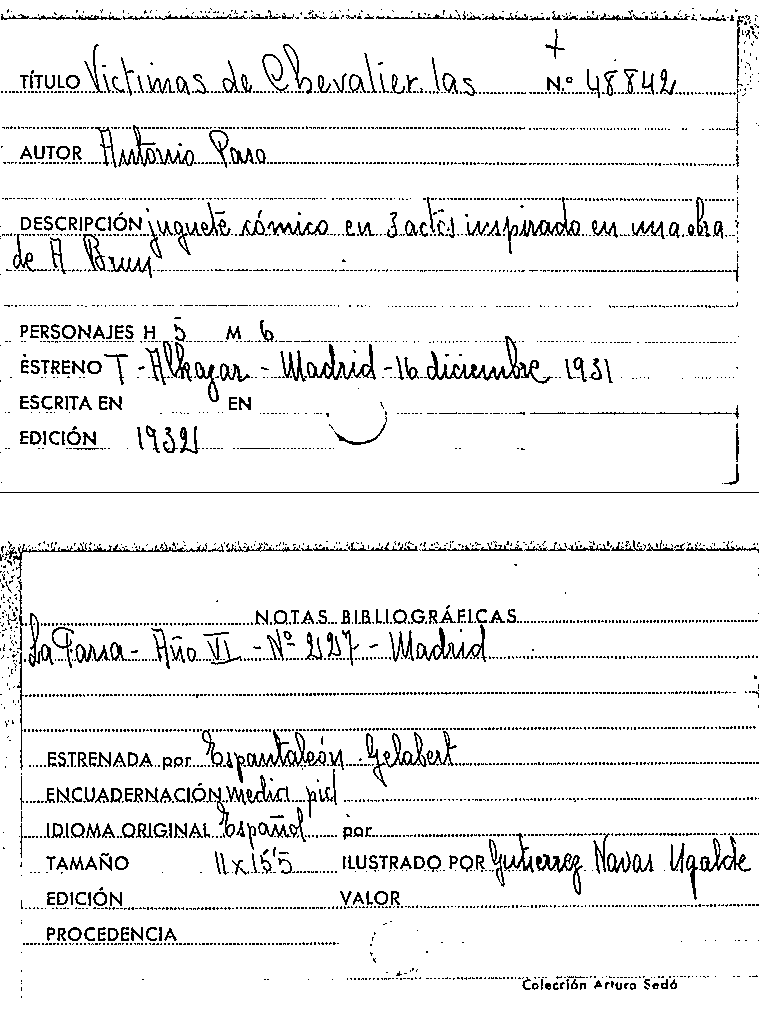 +
TÍTULO Victimas de Chevalier. las N.º 48842
AUTOR Antonio Paso
DESCRIPCIÓN juguete cómico en 3 actos inspirado en una obra
de A Brun
PERSONAJES H 5 M 6
ESTRENO T - Alkazar - Madrid - 16 diciembre 1931
ESCRITA EN EN
EDICIÓN 1932
NOTAS BIBLIOGRÁFICAS
La Farsa - Año VI - Nº 227 - Madrid
ESTRENADA por Espantaleón. Gelabert
ENCUADERNACIÓN media piel
IDIOMA ORIGINAL Español por
TAMAÑO 11 x 15'5 ILUSTRADO POR Gutierrez Navas Ugalde
EDICIÓN VALOR
PROCEDENCIA
Colección Arturo Sedó